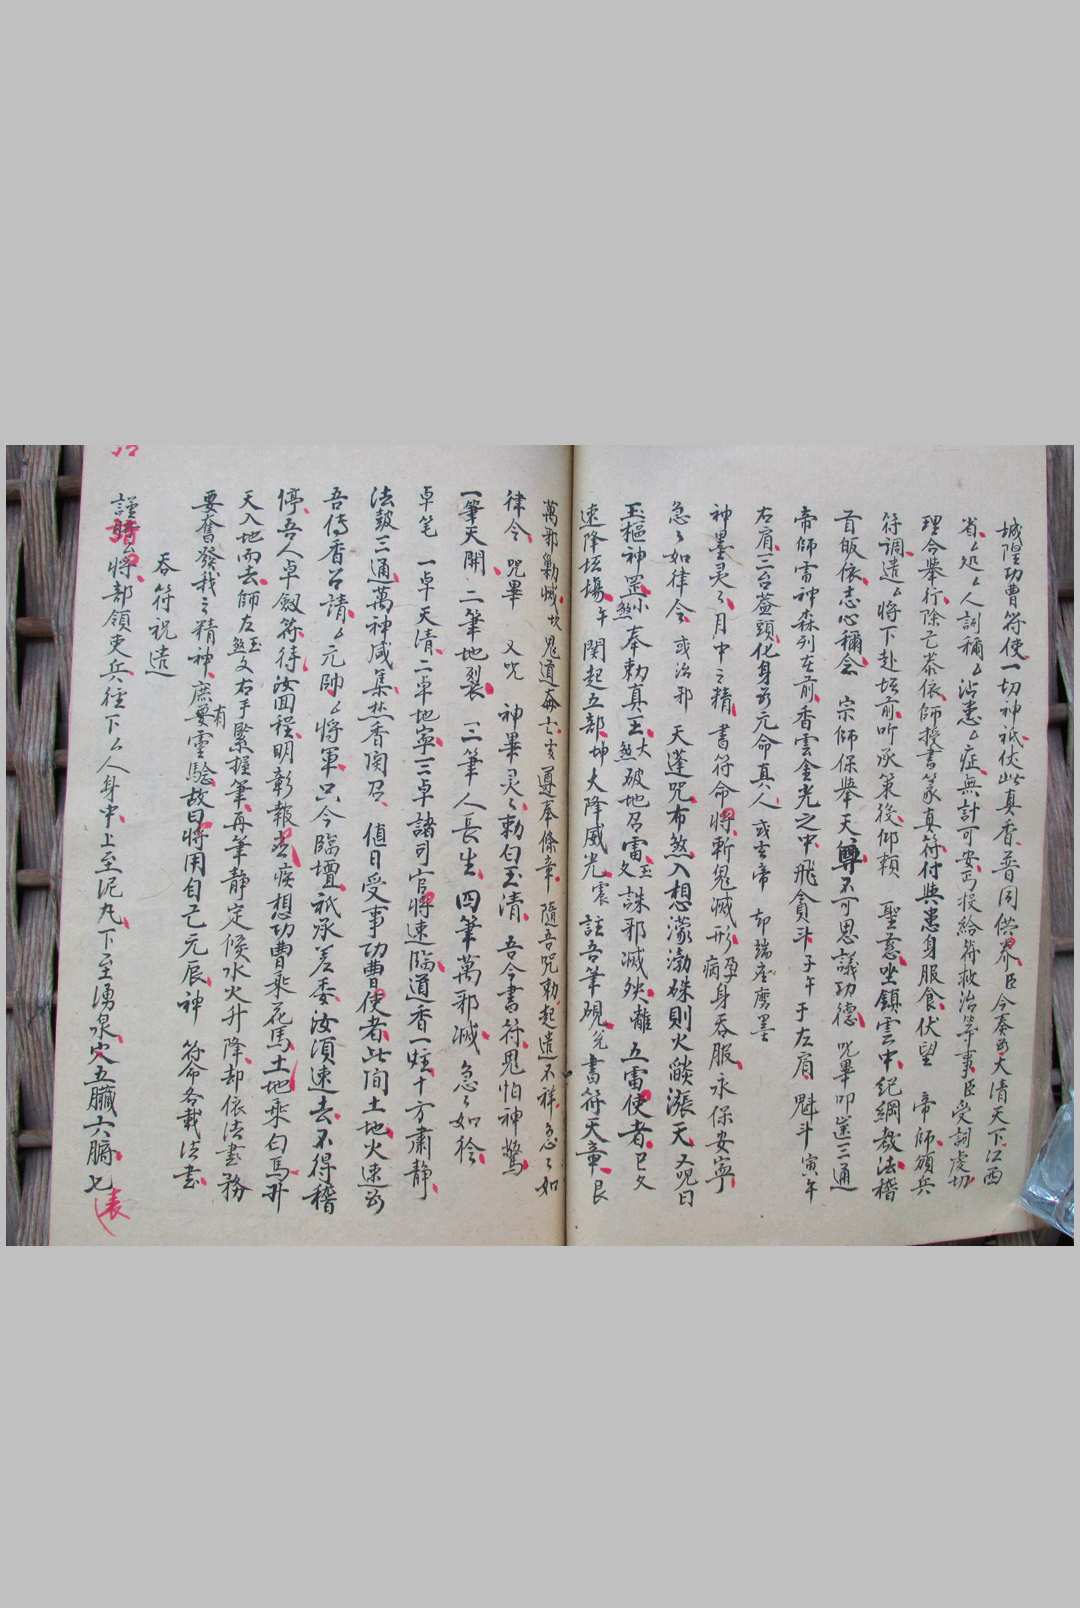 城隍功曹符使一切神祇伏此真香普同供養臣今奏為大清天下江西
省厶処厶人詞稱厶沾患厶症無計可安叩投給符救治等事臣受詞虔切
理合舉行除已恭依師授書篆真符付與患身服食伏望 帝師頒兵
符調遣厶將下赴坛前听承策後仰賴 聖慈坐鎮雲中紀綱教法稽
首皈依志心稱念 宗師保舉天尊不可思議功德 咒畢叩齒三通
帝師雷神森列在前香雲金光之中飛貪斗子午于左肩魁斗寅午
右肩三台蓋頭化身為元命真人或玄帝 却端座磨墨
神墨灵〻月中之精 書符命將斬鬼滅形孕病身吞服永保安寧
急〻如律令 或治邪 天蓬咒布煞入想濛渤硃則火燄漲天又咒曰
玉樞神罡小煞奉勅真王大煞破地召雷玉文誅邪滅殃離 五雷使者巳文
速降坛場午 閗起五部坤大降威光震 註吾筆硯兌書符天章艮
萬邪勦滅坎鬼道每亡亥遵奉條章隨吾咒勅起遣不祥急〻如
律令 咒畢 又咒 神畢灵〻勅曰玉清 吾今書符鬼怕神驚
一筆天開 二筆地裂 三筆人長生四筆萬邪滅 急〻如律令
卓笔 一卓天清二卓地寧三卓諸司官將速臨道香一炷十方肅静
法鼓三通萬神咸集焚香関召 值日受事功曹使者此间土地火速為
吾傳香召請厶元帥厶將軍只今臨壇祇承差委汝須速去不得稽
停吾人卓劔符待汝回程明彰報 疾想功曹乘花馬土地乘白馬升
天入地而去師左玉煞文右手緊握筆再筆静定候水火升降却依法書務
要奮發我之精神庶要有霊驗故曰將用自己元辰神 符命各載法書
吞符祝遣
謹請厶將部領吏兵徑下厶人身中上至泥丸下至湧泉穴五臟六腑七
表